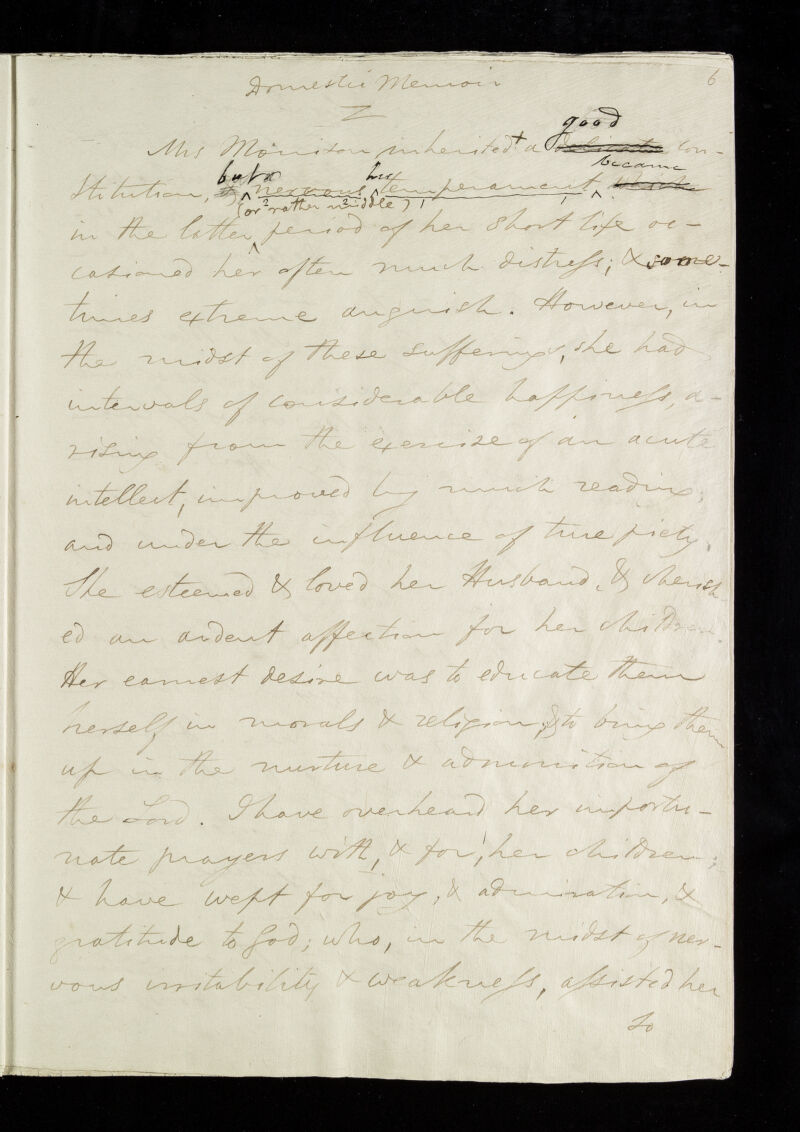 6
Domestic Memoir
good
Mrs Morrison inherited + a delicate con-
but a her became
stitution, & nervous temperament,
(or? rather middle)
in the latter period of her short life oc-
casioned her often much distress; & some-
times extreme anguish. However, in
the midst of these sufferings, she had
intervals of considerable happiness, a-
rising from the exercise of an acute
intellect, improved by much reading;
and under the influence of true piety.
She esteemed & loved her Husband, & cherish
ed an ardent affection for her children.
Her earnest desire was to educate them
herself, in morals & religion, & to bring them
up in the nurture & admonition of
the Lord. I have overheard her importu-
nate prayers with, & for, her children;
& have wept for joy, & admiration, &
gratitude to God; who, in the midst of ner-
vous irritability & weakness, assisted her
to